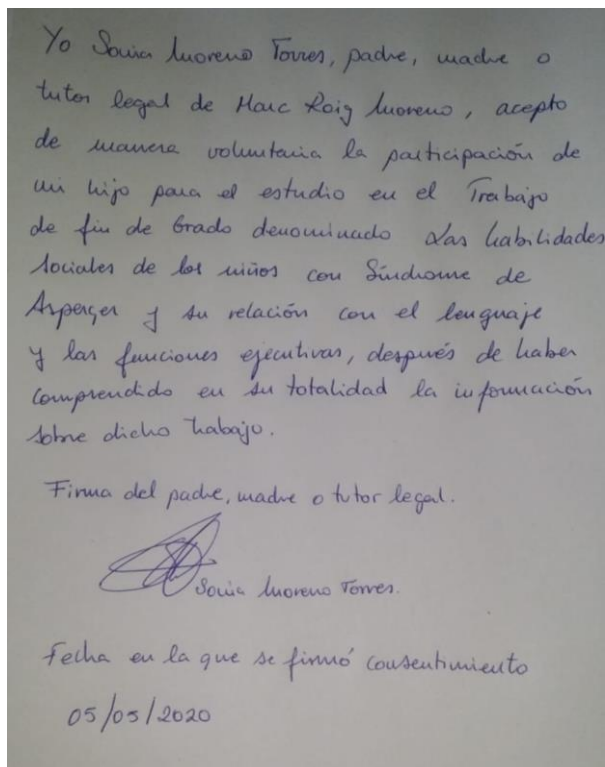 Yo Sonia Moreno Torres, padre, madre o
tutor legal de Marc Roig Moreno, acepto
de manera voluntaria la participación de
mi hijo para el estudio en el Trabajo
de fin de Grado denominado Las habilidades
sociales de los niños con Síndrome de
Asperger y su relación con el lenguaje
y las funciones ejecutivas, después de haber
comprendido en su totalidad la información
sobre dicho trabajo.
Firma del padre, madre o tutor legal.
Sonia Moreno Torres.
Fecha en la que se firmó consentimiento
05/05/2020